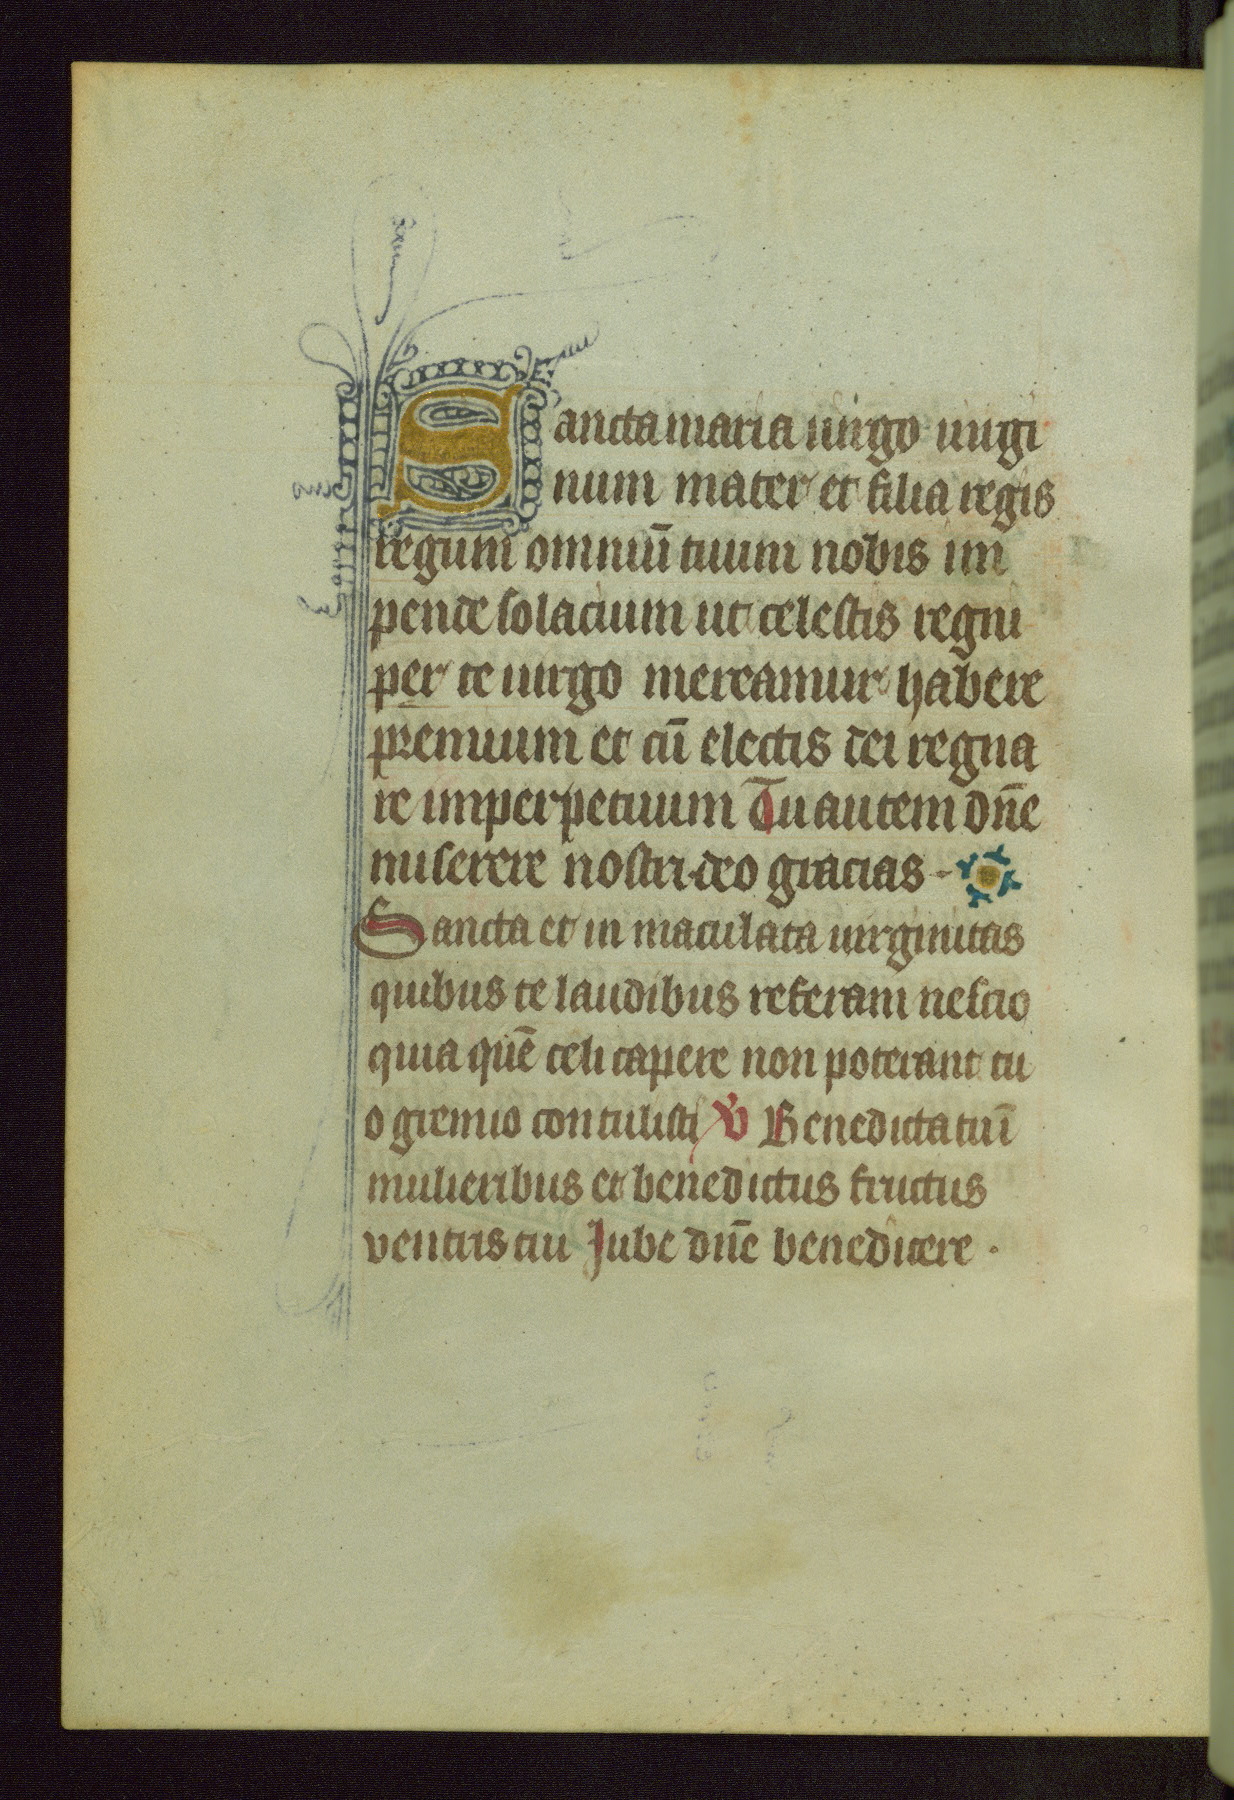 Sancta maria uirgo uirgi
num mater et filia regis
regum omniū tuum nobis im
pende solacium ut celestis regni
per te uirgo mereamur habere
premium et cū electis dei regna
re imperpetuum Tu autem dn̄e
miserere nostri·deo gracias-
Sancta et in maculata uirginitas
quibus te laudibus referam nescio
quia quē celi capere non poterant tu
o gremio contulisti V Benedicta tu ī
mulieribus et benedictus fructus
ventris tui Jube dn̄e benedicere ·